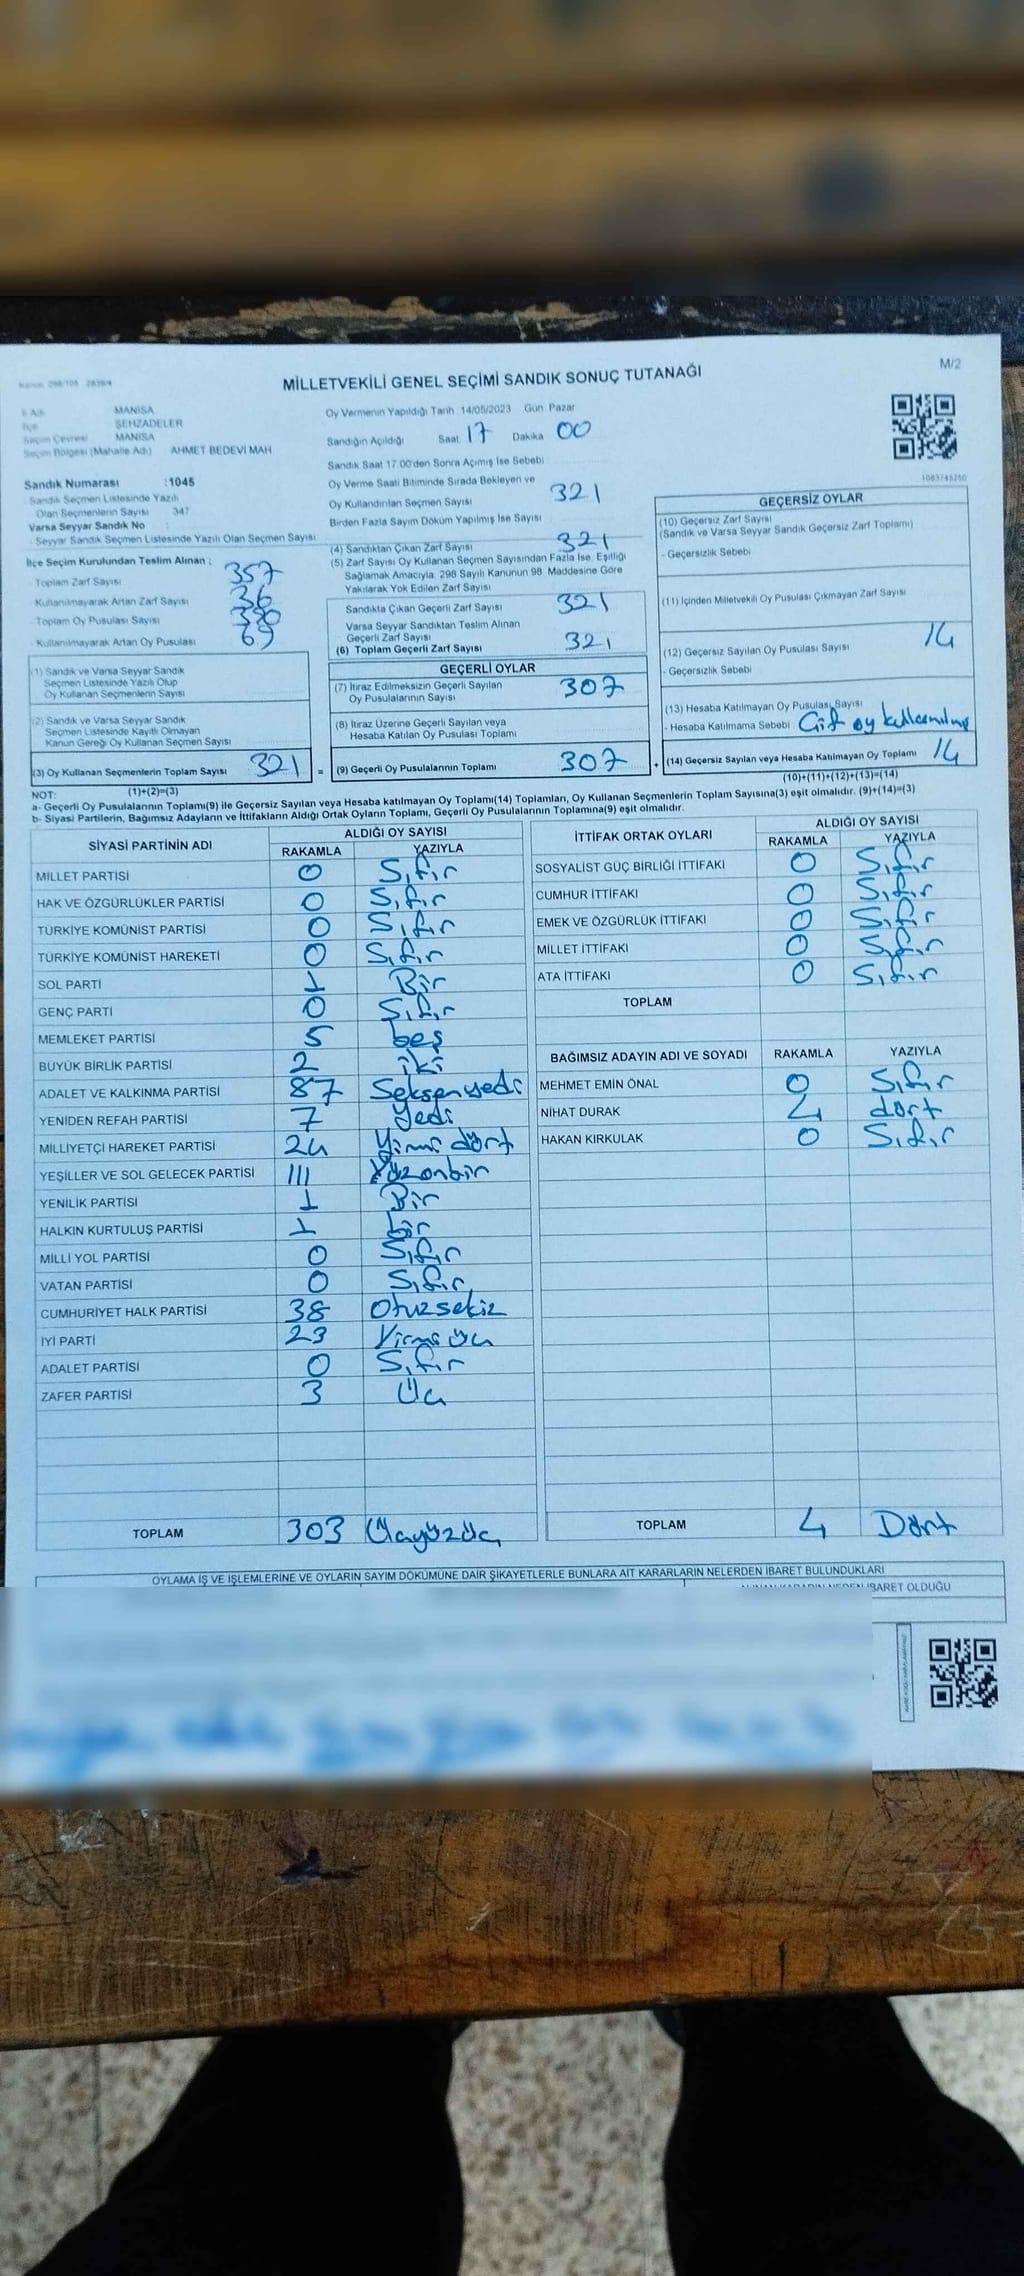 M/2
MİLLETVEKİLİ GENEL SEÇİMİ SANDIK SONUÇ TUTANAĞI
İl Adı MANİSA
İlçe ŞEHZADELER
Seçim Çevresi MANİSA
Seçim Bölgesi (Mahalle Adı) AHMET BEDEVİ MAH
Sandık Numarası :1045
- Sandık Seçmen Listesinde Yazılı
Olan Seçmenlerin Sayısı 347
Varsa Seyyar Sandık No :
- Seyyar Sandık Seçmen Listesinde Yazılı Olan Seçmen Sayısı:
İlçe Seçim Kurulundan Teslim Alınan :
- Toplam Zarf Sayısı 357
- Kullanılmayarak Artan Zarf Sayısı 36
- Toplam Oy Pusulası Sayısı
- Kullanılmayarak Artan Oy Pusulası 69
(1) Sandık ve Varsa Seyyar Sandık
Seçmen Listesinde Yazılı Olup
Oy Kullanan Seçmenlerin Sayısı
(2) Sandık ve Varsa Seyyar Sandık
Seçmen Listesinde Kayıtlı Olmayan
Kanun Gereği Oy Kullanan Seçmen Sayısı
(3) Oy Kullanan Seçmenlerin Toplam Sayısı 321 =
(1)+(2)=(3)
Oy Vermenin Yapıldığı Tarih :14/05/2023 Gün: Pazar
Sandığın Açıldığı Saat 17 Dakika 00
Sandık Saat 17.00'den Sonra Açımış İse Sebebi
Oy Verme Saati Bitiminde Sırada Bekleyen ve
Oy Kullandırılan Seçmen Sayısı 321
Birden Fazla Sayım Döküm Yapılmış İse Sayısı
(4) Sandıktan Çıkan Zarf Sayısı 321
(5) Zarf Sayısı Oy Kullanan Seçmen Sayısından Fazla İse, Eşitliği
Sağlamak Amacıyla, 298 Sayılı Kanunun 98. Maddesine Göre
Yakılarak Yok Edilen Zarf Sayısı
Sandıkta Çıkan Geçerli Zarf Sayısı 321
Varsa Seyyar Sandıktan Teslim Alınan
Geçerli Zarf Sayısı
(6) Toplam Geçerli Zarf Sayısı 321
GEÇERLİ OYLAR
(7) İtiraz Edilmeksizin Geçerli Sayılan
Oy Pusulalarının Sayısı 307
(8) İtiraz Üzerine Geçerli Sayılan veya
Hesaba Katılan Oy Pusulası Toplamı
(9) Geçerli Oy Pusulalarının Toplamı 307 +
1083745250
GEÇERSİZ OYLAR
(10) Geçersiz Zarf Sayısı
(Sandık ve Varsa Seyyar Sandık Geçersiz Zarf Toplamı)
- Geçersizlik Sebebi
(11) İçinden Milletvekili Oy Pusulası Çıkmayan Zarf Sayısı
(12) Geçersiz Sayılan Oy Pusulası Sayısı 14
- Geçersizlik Sebebi
(13) Hesaba Katılmayan Oy Pusulası Sayısı
- Hesaba Katılmama Sebebi : Çift oy kullanılmış
(14) Geçersiz Sayılan veya Hesaba Katılmayan Oy Toplamı 14
(10)+(11)+(12)+(13)=(14)
NOT:
a- Geçerli Oy Pusulalarının Toplamı(9) ile Geçersiz Sayılan veya Hesaba katılmayan Oy Toplamı(14) Toplamları, Oy Kullanan Seçmenlerin Toplam Sayısına(3) eşit olmalıdır. (9)+(14)=(3)
b- Siyasi Partilerin, Bağımsız Adayların ve İttifakların Aldığı Ortak Oyların Toplamı, Geçerli Oy Pusulalarının Toplamına(9) eşit olmalıdır.
SİYASİ PARTİNİN ADI ALDIĞI OY SAYISI
RAKAMLA YAZIYLA
MİLLET PARTİSİ 0 Sıfır
HAK VE ÖZGÜRLÜKLER PARTİSİ 0 Sıfır
TÜRKİYE KOMÜNİST PARTİSİ 0 Sıfır
TÜRKİYE KOMÜNİST HAREKETİ 0 Sıfır
SOL PARTİ 1 Bir
GENÇ PARTİ 0 Sıfır
MEMLEKET PARTİSİ 5 beş
BÜYÜK BİRLİK PARTİSİ 2 iki
ADALET VE KALKINMA PARTİSİ 87 Seksenyedi
YENİDEN REFAH PARTİSİ 7 Yedi
MİLLİYETÇİ HAREKET PARTİSİ 24 Yirmi dört
YEŞİLLER VE SOL GELECEK PARTİSİ 111 Yüzonbir
YENİLİK PARTİSİ 1 Bir
HALKIN KURTULUŞ PARTİSİ 1 bir
MİLLİ YOL PARTİSİ 0 Sıfır
VATAN PARTİSİ 0 Sıfır
CUMHURİYET HALK PARTİSİ 38 Otuzsekiz
İYİ PARTİ 23 Yirmi üç
ADALET PARTİSİ 0 Sıfır
ZAFER PARTİSİ 3 Üç
TOPLAM 303 Üçyüzüç
İTTİFAK ORTAK OYLARI ALDIĞI OY SAYISI
RAKAMLA YAZIYLA
SOSYALİST GÜÇ BİRLİĞİ İTTİFAKI 0 Sıfır
CUMHUR İTTİFAKI 0 Sıfır
EMEK VE ÖZGÜRLÜK İTTİFAKI 0 Sıfır
MİLLET İTTİFAKI 0 Sıfır
ATA İTTİFAKI 0 Sıfır
TOPLAM
BAĞIMSIZ ADAYIN ADI VE SOYADI RAKAMLA YAZIYLA
MEHMET EMİN ÖNAL 0 Sıfır
NİHAT DURAK 4 dört
HAKAN KIRKULAK 0 Sıfır
TOPLAM 4 Dört
OYLAMA İŞ VE İŞLEMLERİNE VE OYLARIN SAYIM DÖKÜMÜNE DAİR ŞİKAYETLERLE BUNLARA AİT KARARLARIN NELERDEN İBARET BULUNDUKLARI
İBARET OLDUĞU